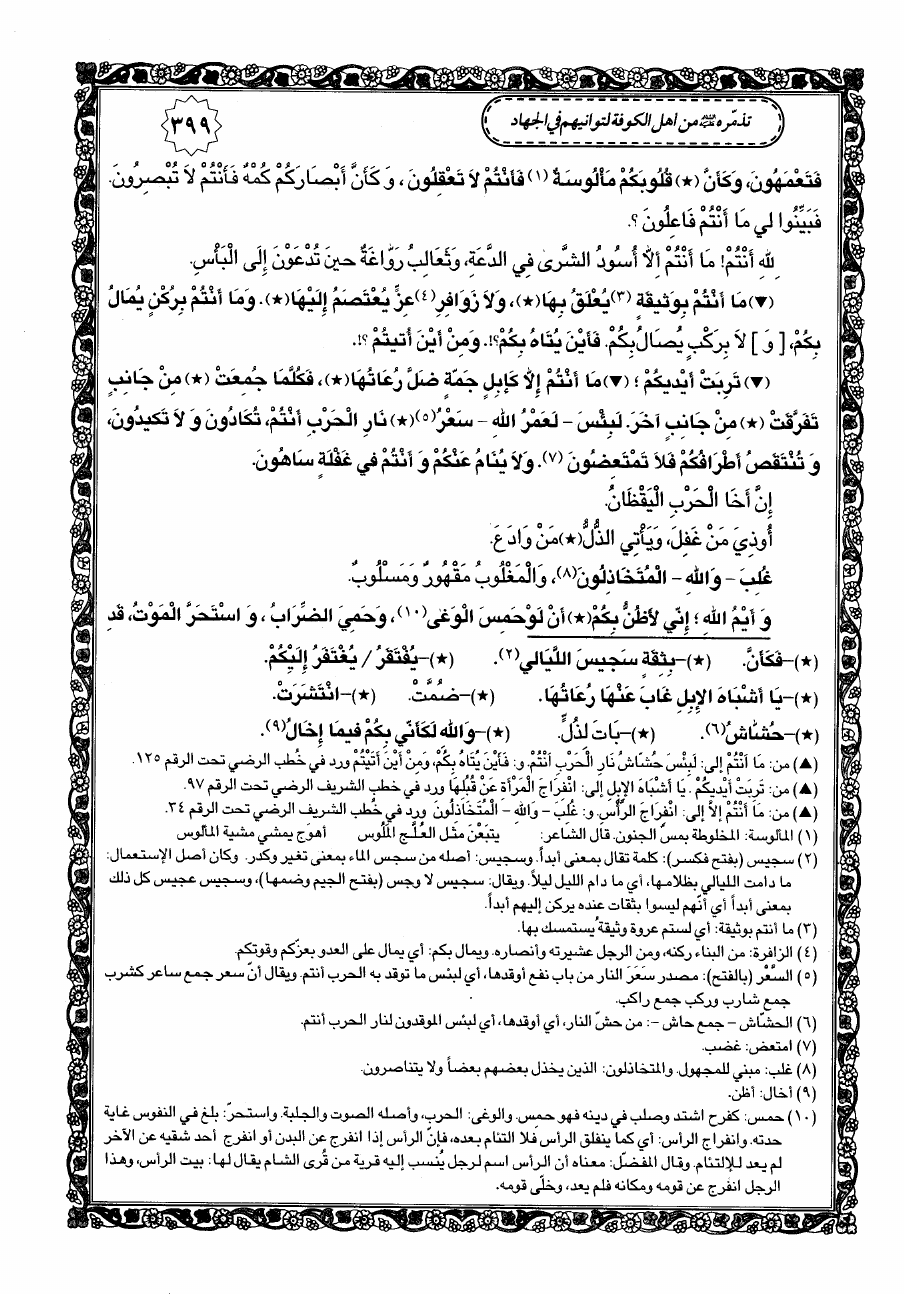 تذمّره من أهل الكوفة لتوانيهم في الجهاد
٣٩٩
فَتَعْمَهُونَ، وَكَأَنَّ (★) قُلُوبَكُمْ مَأْلُوسَةٌ (١) فَأَنْتُمْ لاَ تَعْقِلُونَ، وَكَأَنَّ أَبْصَارَكُمْ كُمْهٌ فَأَنْتُمْ لاَ تُبْصِرُونَ.
فَبَيِّنُوا لي مَا أَنْتُمْ فَاعِلُونَ؟.
لله أَنْتُمْ! مَا أَنْتُمْ ألاَّ أُسُودُ الشَّرىٰ فِي الدَّعَةِ، وَثَعَالِبُ رَوَّاغَةٌ حينَ تُدْعَوْنَ إِلَى الْبَأْسِ.
(▼)مَا أَنْتُمْ بِوَثيقَةٍ (٣)يُعْلَقُ بِهَا(★)، وَلاَ زَوَافِرِ(٤)عِزٍّ يُعْتَصَمُ إِلَيْهَا(★). وَمَا أَنْتُمْ بِرُكْنٍ يُمَالُ
بِكُمْ، [ وَ ] لاَ بِرَكْبٍ يُصَالُ بِكُمْ. فَأَيْنَ يُتَاهُ بِكُمْ؟!. وَمِنْ أَيْنَ أُتيتُمْ؟!.
(▼) تَرِبَتْ أَيْديكُمْ؛ (▼)مَا أَنْتُمْ إِلاَّ كَإِبِلٍ جَمَّةٍ ضَلَّ رُعَاتُهَا(★)، فَكُلَّمَا جُمِعَتْ (★) مِنْ جَانِبٍ
تَفَرَّقَتْ (★) مِنْ جَانِبٍ آخَرَ. لَبِئْسَ – لَعَمْرُ اللهِ – سَعْرُ(٥)(★) نَارِ الْحَرْبِ أَنْتُمْ، تُكَادُونَ وَ لاَ تَكيدُونَ،
وَ تُنْتَقَصُ أَطْرَافُكُمْ فَلاَ تَمْتَعِضُونَ (٧). وَلاَ يُنَامُ عَنْكُمْ وَ أَنْتُمْ في غَفْلَةٍ سَاهُونَ.
إِنَّ أَخَا الْحَرْبِ الْيَقْظَانُ.
أُوذِيَ مَنْ غَفِلَ، وَيَأْتِي الذُّلُّ(★)مَنْ وَادَعَ.
غُلِبَ – وَاللهِ – الْمُتَخَاذِلُونَ(٨)، وَالْمَغْلُوبُ مَقْهُورٌ وَمَسْلُوبٌ.
وَ أَيْمُ اللهِ؛ إِنّي لأَظُنُّ بِكُمْ(★)أَنْ لَوْ حَمِسَ الْوَغىٰ(١٠)، وَحَمِيَ الضِّرَابُ، وَ اسْتَحَرَّ الْمَوْتُ، قَدِ
(★)–فَكَأَنَّ. (★)–بِثِقَةٍ سَجيسَ اللَّيَالي(٢). (★)–يُفْتَقَرُ / يُغْتَفَرُ إِلَيْكُمْ.
(★)–يَا أَشْبَاهَ الإِبِلِ غَابَ عَنْهَا رُعَاتُهَا. (★)–ضُمَّتْ. (★)–انْتَشَرَتْ.
(★)–حُشَّاشُ(٦). (★)–بَاتَ لِذُلٍّ. (★)–وَاللهِ لَكَأَنّي بِكُمْ فيمَا إِخَالُ(٩).
(▲) من: مَا أَنْتُمْ إلى: لَبِئْسَ حُشَّاشُ نَارِ الْحَرْبِ أَنْتُمْ. و: فَأَيْنَ يُتَاهُ بِكُمْ، وَمِنْ أَيْنَ أُتيتُمْ ورد في خُطب الرضي تحت الرقم ١٢٥.
(▲) من: تَرِبَتْ أَيْديكُمْ. يَا أَشْبَاهَ الإِبِلِ إلى: انْفِرَاجَ الْمَرْأَةِ عَنْ قُبُلِهَا ورد في خطب الشريف الرضي تحت الرقم ٩٧.
(▲) من: مَا أَنْتُمْ إِلاَّ إلى: انْفِرَاجَ الرَّأْسِ. و: غُلِبَ – وَاللهِ – الْمُتَخَاذِلُونَ ورد في خُطب الشريف الرضي تحت الرقم ٣٤.
(١) المألوسة: المخلوطة بمسّ الجنون. قال الشاعر: يتبعْنَ مثل العُلَّج المَلُوس أهوج يمشي مشية المألوس
(٢) سجيس (بفتح فكسر): كلمة تقال بمعنى أبداً. وسجيس: أصله من سجس الماء بمعنى تغير وكدر. وكان أصل الإستعمال:
ما دامت الليالي بظلامها، أي ما دام الليل ليلاً. ويقال: سجيس لا وجس (بفتح الجيم وضمها)، وسجيس عجيس كل ذلك
بمعنى أبداً أي أنّهم ليسوا بثقات عنده يركن إليهم أبداً.
(٣) ما أنتم بوثيقة: أي لستم عروة وثيقة يُستمسك بها.
(٤) الزافرة: من البناء ركنه، ومن الرجل عشيرته وأنصاره. ويمال بكم: أي يمال على العدو بعزّكم وقوتكم.
(٥) السَّعْر (بالفتح): مصدر سَعَرَ النار من باب نفع أوقدها، أي لبئس ما توقد به الحرب أنتم. ويقال أنّ سعر جمع ساعر كشرب
جمع شارب وركب جمع راكب.
(٦) الحشّاش – جمع حاش –: من حشّ النار، أي أوقدها، أي لبئس الموقدون لنار الحرب أنتم.
(٧) امتعض: غضب.
(٨) غلب: مبني للمجهول. والمتخاذلون: الذين يخذل بعضهم بعضاً ولا يتناصرون.
(٩) أخال: أظن.
(١٠) حمس: كفرح اشتد وصلب في دينه فهو حمس. والوغى: الحرب، وأصله الصوت والجلبة. واستحرّ: بلغ في النفوس غاية
حدته. وانفراج الرأس: أي كما ينفلق الرأس فلا التئام بعده، فإنّ الرأس إذا انفرج عن البدن أو انفرج أحد شقيه عن الآخر
لم يعد للإلتئام. وقال المفضّل: معناه أن الرأس اسم لرجل يُنسب إليه قرية من قُرى الشام يقال لها: بيت الرأس، وهذا
الرجل انفرج عن قومه ومكانه فلم يعد، وخلّى قومه.